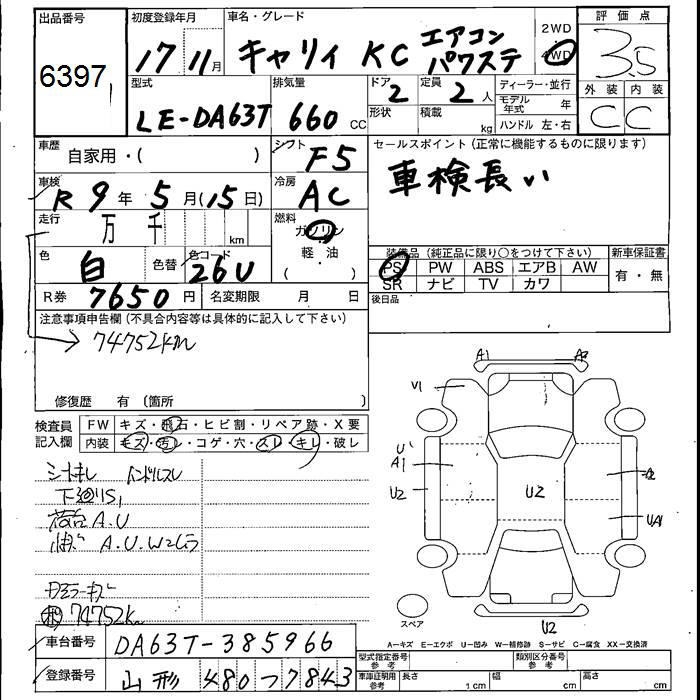 出品番号 初度登録年月 車名・グレード 2WD 評価点
6397 17 11月 キャリィ KC エアコン パワステ 4WD 3.5
型式 排気量 ドア 定員 ディーラー・並行 外装 内装
LE-DA63T 660 CC 2 2人 モデル年式 年 C C
形状 積載 kg ハンドル 左・右
車歴 自家用・( ) シフト F5 セールスポイント(正常に機能するものに限ります)
車検 R 9年 5月(15日) 冷房 AC 車検長い
走行 万 千 km 燃料 ガソリン
軽・油
( )
装備品(純正品に限り○をつけて下さい) 新車保証書
色 白 色替 色コード 26U PS PW ABS エアB AW 有・無
SR ナビ TV カワ
R券 7650円 名変期限 月 日 後日品
注意事項申告欄(不具合内容等は具体的に記入して下さい)
74752km
修復歴 有(箇所 )
検査員 記入欄 FW キズ・飛石・ヒビ割・リペア跡・X要
内装 キズ・汚レ・コゲ・穴・スレ・キレ・破レ
シートキレ ハンドルスレ
下廻りS1
荷台A.U
A.U.W2
74752Km
A1 A2
V1
U1
A1
U2
U2
UA1
スペア
U2
A-キズ E-エクボ U-凹み W-補修跡 S-サビ C-腐食 XX-交換済
車台番号 DA63T-385966 型式指定番号 参考 類別区分番号 参考
登録番号 山形 480つ7843 車庫証明用 参考 長さ cm 幅 cm 高さ cm